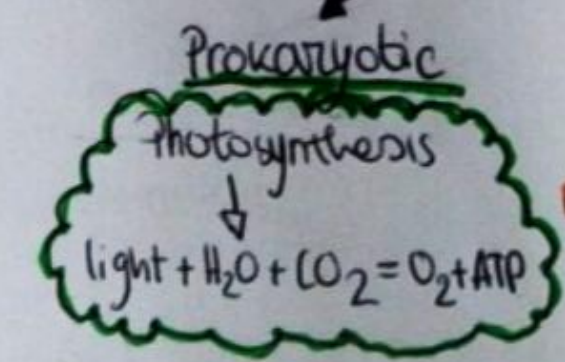 Prokaryotic
Photosynthesis
light + H₂O + CO₂ = O₂ + ATP